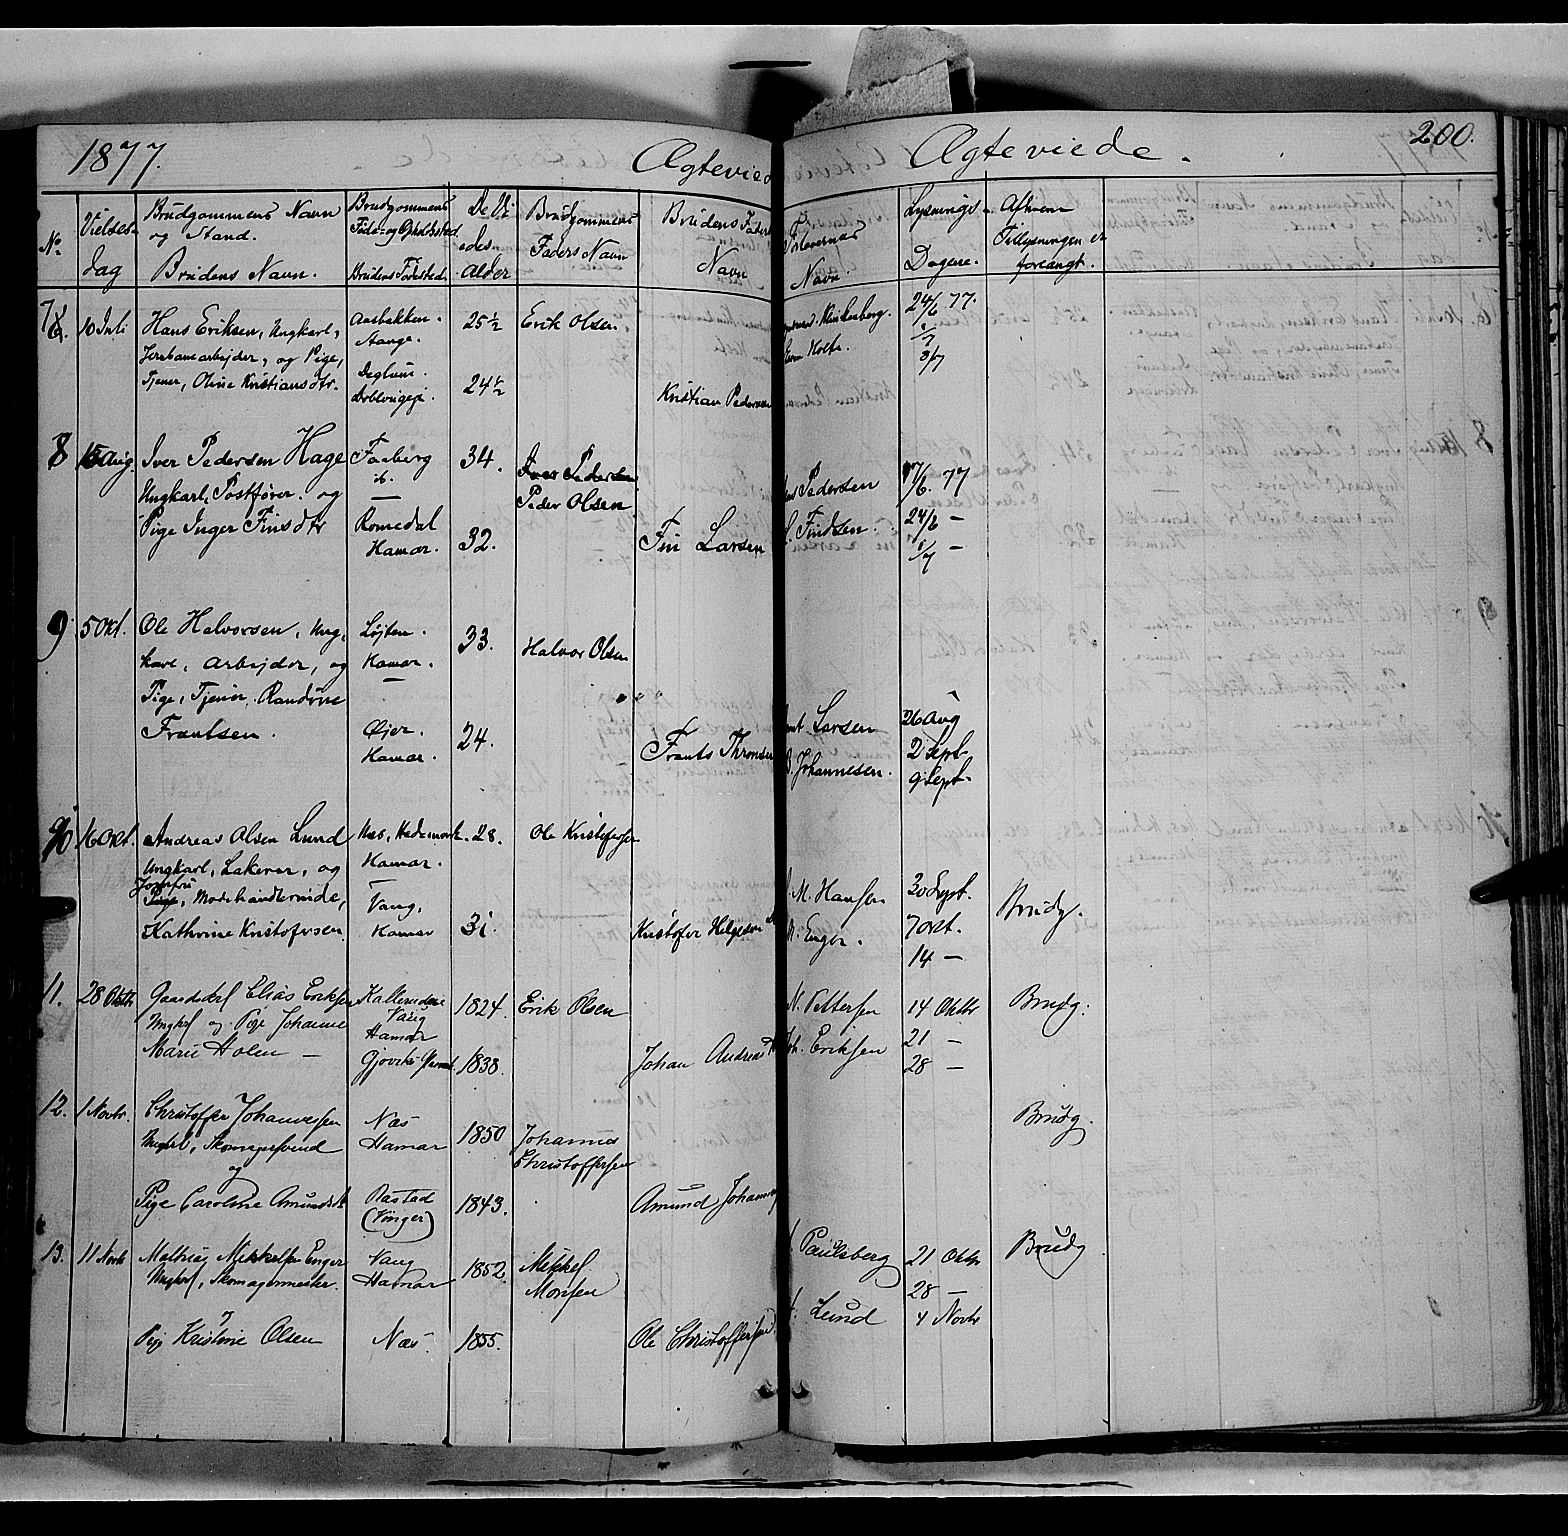 1877.
Ægteviede
Ægteviede.
200.
No
Vielses-
dag
Brudgommens Navn
og Stand.
Brudens Navn.
Brudgommens
Føde- og Opholdssted
Brudens Fødested
Alder
Brudgommens
Faders Navn
Brudens Faders
Navn
Forlovernes
Navn.
Lysnings-
Dagene.
Tillysningen er
forlangt.
7
10 Juli
Hans Eriksen, Ungkarl,
Jernbanearbejder, og Pige,
Tjener, Oline Kristiansdtr.
Aasbakken.
Stange.
25½
24½
Erik Olsen
Kristian Pedersen
Klinkenberg.
Holte.
24/6 77.
1/7
8/7
8
15 Aug.
Iver Pedersen Hage
Ungkarl, Postfører. og
Pige Inger Finsdtr
Faaberg
ib.
—
Romedal
Hamar.
34.
32.
Iver Pedersen
Peder Olsen
Fin Larsen
Pedersen
Findsen.
17/6 77
24/6 —
1/7 —
9
5 Okt.
Ole Halvorsen, Ung-
karl, Arbejder, og
Pige, Tjener, Randine
Frantsen.
Løjten.
Hamar.
—
Øjer.
Hamar.
33.
24.
Halvor Olsen
" " "
Frants Thronsen
Larsen
Johannesen.
26 Aug
2 Sept
9 Sept.
10
16 Okt.
Andreas Olsen Lund
Ungkarl, Lakerer, og
Jomfru
Pige, Modehandlerinde,
Kathrine Kristofersen
Næs, Hedemark.
Hamar.
Vang,
Hamar
28.
31.
Ole Kristofersen
Kristofer Helgesen
M. Hansen
Enger.
30 Sept.
7 Okt.
14 —
Brudg.
11.
28 Oktb
Gaardskrl Elias Eriksen
Ungkrl og Pige Johanne
Marie Holen —
Vang
Hamar
1824.
1838.
Erik Olsen
Johan Andreas
N. Pettersen
Joh. Eriksen
14 Oktbr
21 —
28 —
Brudg.
12.
1 Novbr.
Christoffer Johannessen
Ungkrl, Skomagersvend
og
Pige Caroline Amundsdt
Næs
Hamar
Aastad
(Vinger)
1850
1843.
Johannes
Christoffersen
Amund Johannes
Brudg.
13.
11 Novb
Mathias Mikkelsen Enger
Ungkrl, Skomagermester.
og
Pige Kristine Olsen
Vang
Hamar
Næs
1852.
1855.
Mikkel
Monsen
Ole Christoffersen
Paulsberg
Lund
21 Oktbr
28 —
4 Novbr
Brudg